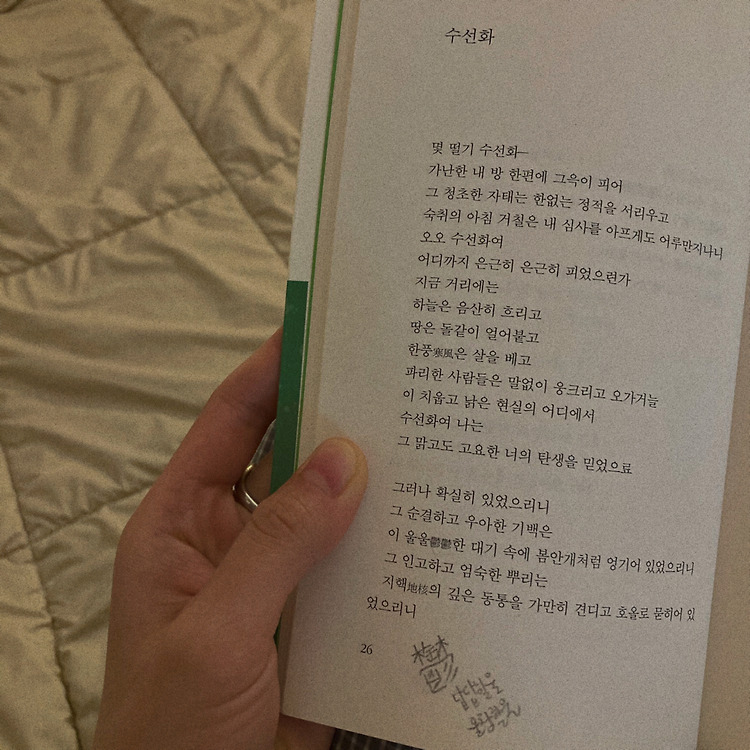 수선화
몇 떨기 수선화―
가난한 내 방 한편에 그윽이 피어
그 청초한 자태는 한없는 정적을 서리우고
숙취의 아침 거칠은 내 심사를 아프게도 어루만지나니
오오 수선화여
어디까지 은근히 은근히 피었으련가
지금 거리에는
하늘은 음산히 흐리고
땅은 돌같이 얼어붙고
한풍寒風은 살을 베고
파리한 사람들은 말없이 웅크리고 오가거늘
이 치웁고 낡은 현실의 어디에서
수선화여 나는
그 맑고도 고요한 너의 탄생을 믿었으료
그러나 확실히 있었으리니
그 순결하고 우아한 기백은
이 울울鬱鬱한 대기 속에 봄안개처럼 엉기어 있었으리니
그 인고하고 엄숙한 뿌리는
지핵地核의 깊은 동통을 가만히 견디고 호올로 묻히어 있
었으리니
26
답답할 울
울창할 울